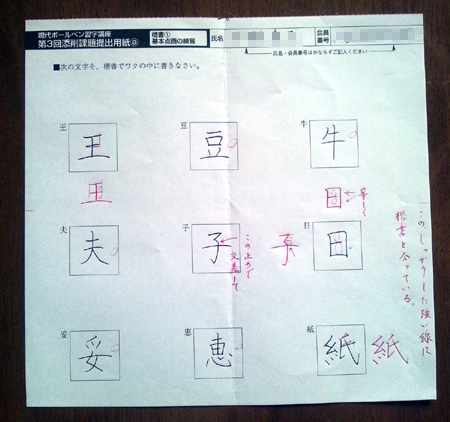 現代ボールペン習字講座
第3回添削課題提出用紙ⓐ
楷書①
基本点画の練習
氏名
会員
番号
氏名・会員番号はかならずご記入ください
■次の文字を、楷書でワクの中に書きなさい。
王 王
豆 豆
牛 牛
王
田
等しく
夫 夫
子 子
この止めで
交差して
子
田
このしっかりした強い線は
楷書と合っている。
妥 妥
恵 恵
紙 紙
紙